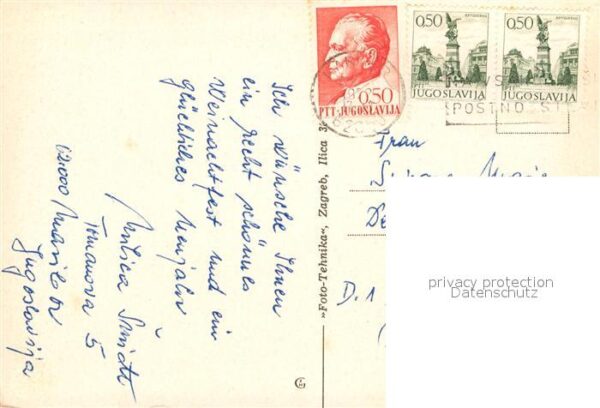 Ich wünsche Ihnen
ein recht schönes
Weinachtfest und ein
glückliches Neujahr
Milica
Tomanova 5
62000 Maribor
Jugoslavija
»Foto-Tehnika«, Zagreb, Ilica 3
0,50
PTT-JUGOSLAVIJA
0,50
PTT
JUGOSLAVIJA
0,50
PTT
JUGOSLAVIJA
POŠTNO
Frau
D. 1
privacy protection
Datenschutz